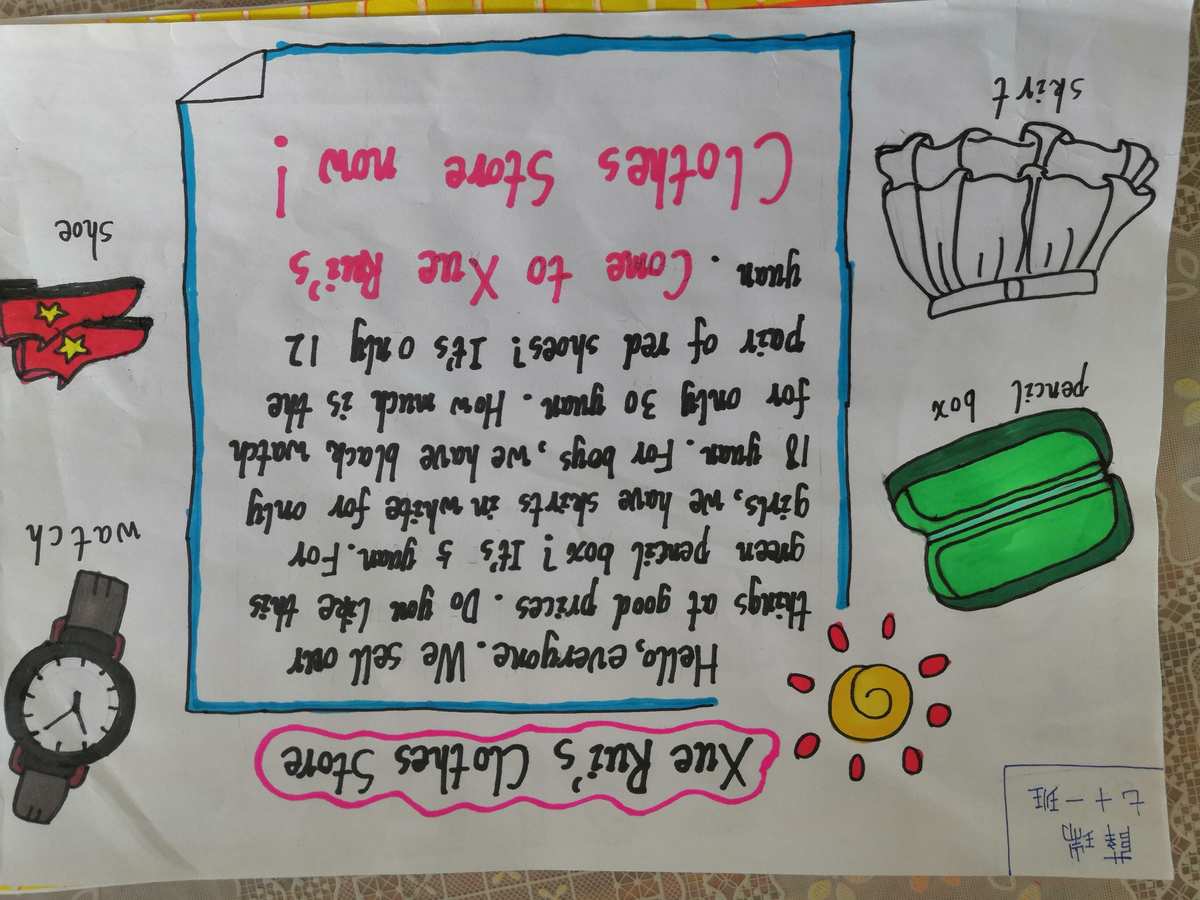 薛瑞
七十一班
Xue Rui's Clothes Store
Hello, everyone. We sell our
things at good prices. Do you like this
green pencil box? It's 5 yuan. For
girls, we have skirts in white for only
18 yuan. For boys, we have black watch
for only 30 yuan. How much is the
pair of red shoes? It's only 12
yuan. Come to Xue Rui's
Clothes Store now!
watch
shoe
pencil box
skirt